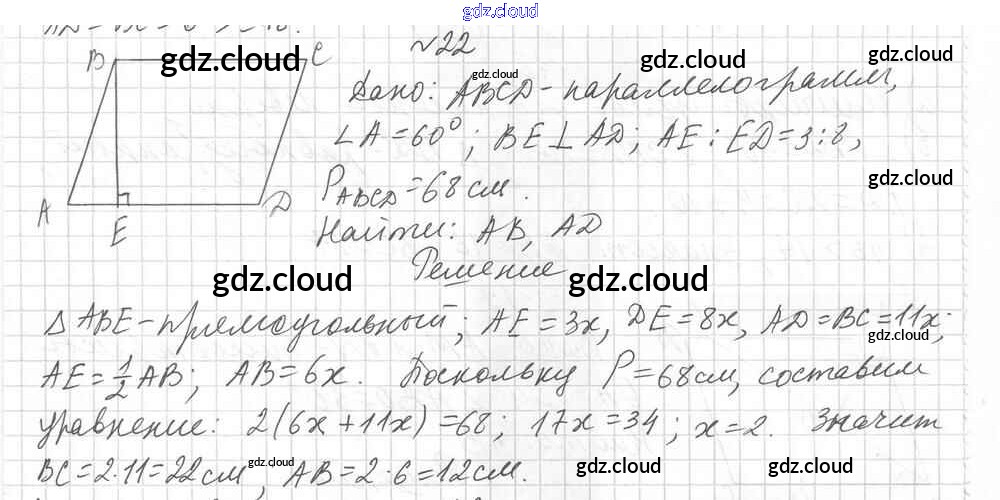 gdz.cloud
№22
B
C
gdz.cloud
gdz.cloud
gdz.cloud
gdz.cloud
Дано: ABCD - параллелограмм,
∠A = 60°; BE ⊥ AD; AE : ED = 3:8,
gdz.cloud
P_ABCD = 68 см.
gdz.cloud
A
E
D
Найти: AB, AD
Решение
gdz.cloud
gdz.cloud
Δ ABE - прямоугольный; AE = 3x, DE = 8x, AD = BC = 11x;
gdz.cloud
AE = 1/2 AB; AB = 6x. Поскольку P = 68 см, составим
уравнение: 2(6x + 11x) = 68; 17x = 34; x = 2. Значит
BC = 2·11 = 22 см, AB = 2·6 = 12 см.
gdz.cloud
gdz.cloud
gdz.cloud